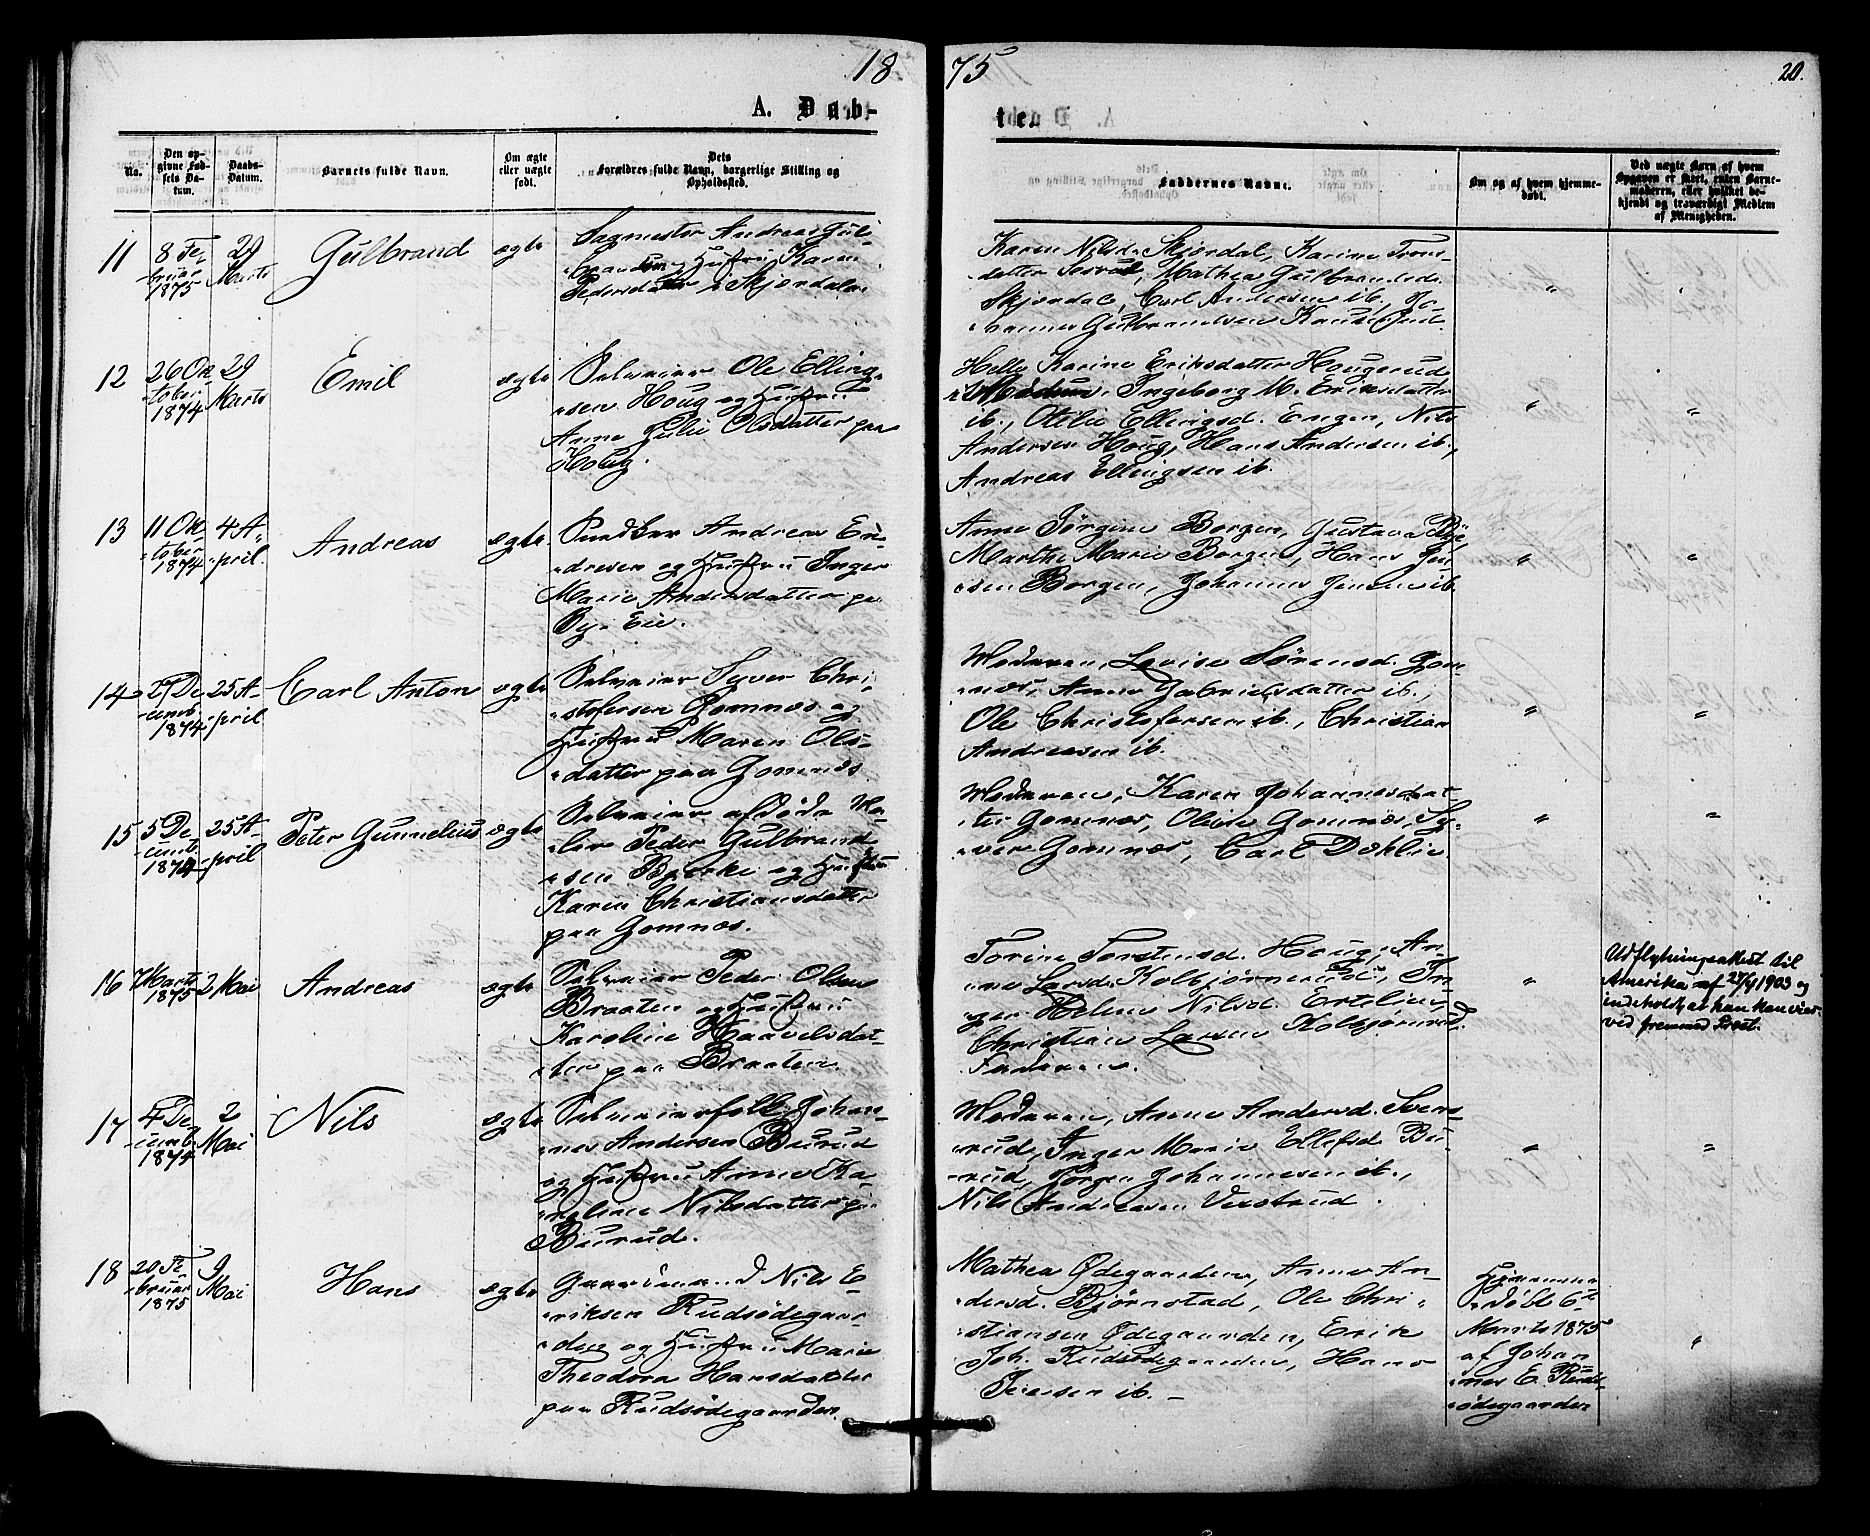 1875
20.
A. Døb-
te.
No.
Den op-
givne Fød-
sels Da-
tum.
Daabs-
Datum.
Barnets fulde Navn.
Om ægte
eller uægte
født.
Dets
Forældres fulde Navn, borgerlige Stilling og
Opholdssted.
Faddernes Navne.
Om og af hvem hjemme-
døbt.
Ved uægte Barn af hvem
Opgaven er skeet, enten Barne-
moderen, eller hvilket be-
kjendt og troværdigt Medlem
af Menigheden.
11
8 Fe-
bruar
1875
29
Marts
Gulbrand
ægte
Sagmester Andreas Gul-
Hustru Karen
Pedersdatter i Skjørdalen
Karen Nilsd. Skjørdal, Karine Trons-
datter Mathea Gulbrandsd.
Skjørdal, Carl Andersen ib., Jo-
hannes Gulbrandsen
"
12
26 Ok-
tober
1874
29
Marts
Emil
ægte
Selveier Ole Elling-
sen Houg og Hustru
Anne Julie Olsdatter paa
Houg.
Helle Karine Eriksdatter Hougerud
Modum, Ingeborg M. Eriksdatter
ib., Otilie Ellingsd. Engen, Nils
Andersen Houg, Hans Andersen ib.,
Andreas Ellingsen ib.
"
"
13
11 Ok-
tober
1874
4 A-
pril.
Andreas
ægte
Andreas En-
dresen og Hustru Inger
Marie Andersdatter pa
By-Eie.
Anne Jørgine Borgen, Gustava
Marthe Marie Borgen, Hans Jen-
sen Borgen, Johannes Jensen ib.
"
"
14
27 De-
cemb.
1874
25 A-
pril
Carl Anton
ægte
Selveier Syver Chri-
stofersen Gomnæs og
Hustru Maren Ols-
datter paa Gomnæs
Moderen, Lovise Sørensd. Gom-
næs, Anne Gabrielsdatter ib.,
Ole Christofersen ib., Christian
Andreasen ib.
"
"
15
5 De-
cemb.
1874
25 A-
pril
Peter Gunnelius
ægte
Selveier afdøde Ma-
ler Peder Gulbrand-
sen Bjerke og Hustru
Karen Christiansdatter
paa Gomnæs.
Moderen, Karen Johannesdat-
ter Gomnæs, Gomnæs, Sy-
ver Gomnæs, Carl Dæhlie
"
"
16
7 Marts
1875
2 Mai
Andreas
ægte
Selveier Peder Olsen
Braaten og Hustru
Karoline Haavelsdat-
ter paa Braaten
Torine Torstensd. Houg, An-
ne Larsd. In-
ger Helene Nilsd.
Christian Larsen Kolbjørnrud.
Faderen.
"
Udflytningsattest til
Amerika af 27/4 1903 og
indeholdt, at han kan vies
ved fremmed Præst.
17
4 De-
cemb.
1874
2
Mai
Nils
ægte
Selveierfolk Johan-
nes Andersen Burud
og Hustru Anne Ka-
roline Nilsdatter pa
Burud.
Moderen, Anne Andersd. Svens-
rud, Inger Marie Ellefsd. Bu-
rud, Jørgen Johannesen ib.,
Nils Andersen
"
"
18
20 Fe-
bruar
1875
9
Mai
Hans
ægte
Gaardmand Nils E-
riksen Rudsødegaar-
den og Hustru Marie
Theodora Hansdatter
paa Rudsødegaarden.
Mathea Ødegaarden, Anne An-
dersd. Bjørnstad, Ole Chri-
stiansen Ødegaarden, Erik
Joh. Rudsødegaarden, Hans
Iversen ib.
Hjemme-
døbt 6te
Marts 1875
af Johan-
nes E. Ruds-
ødegaarden
"